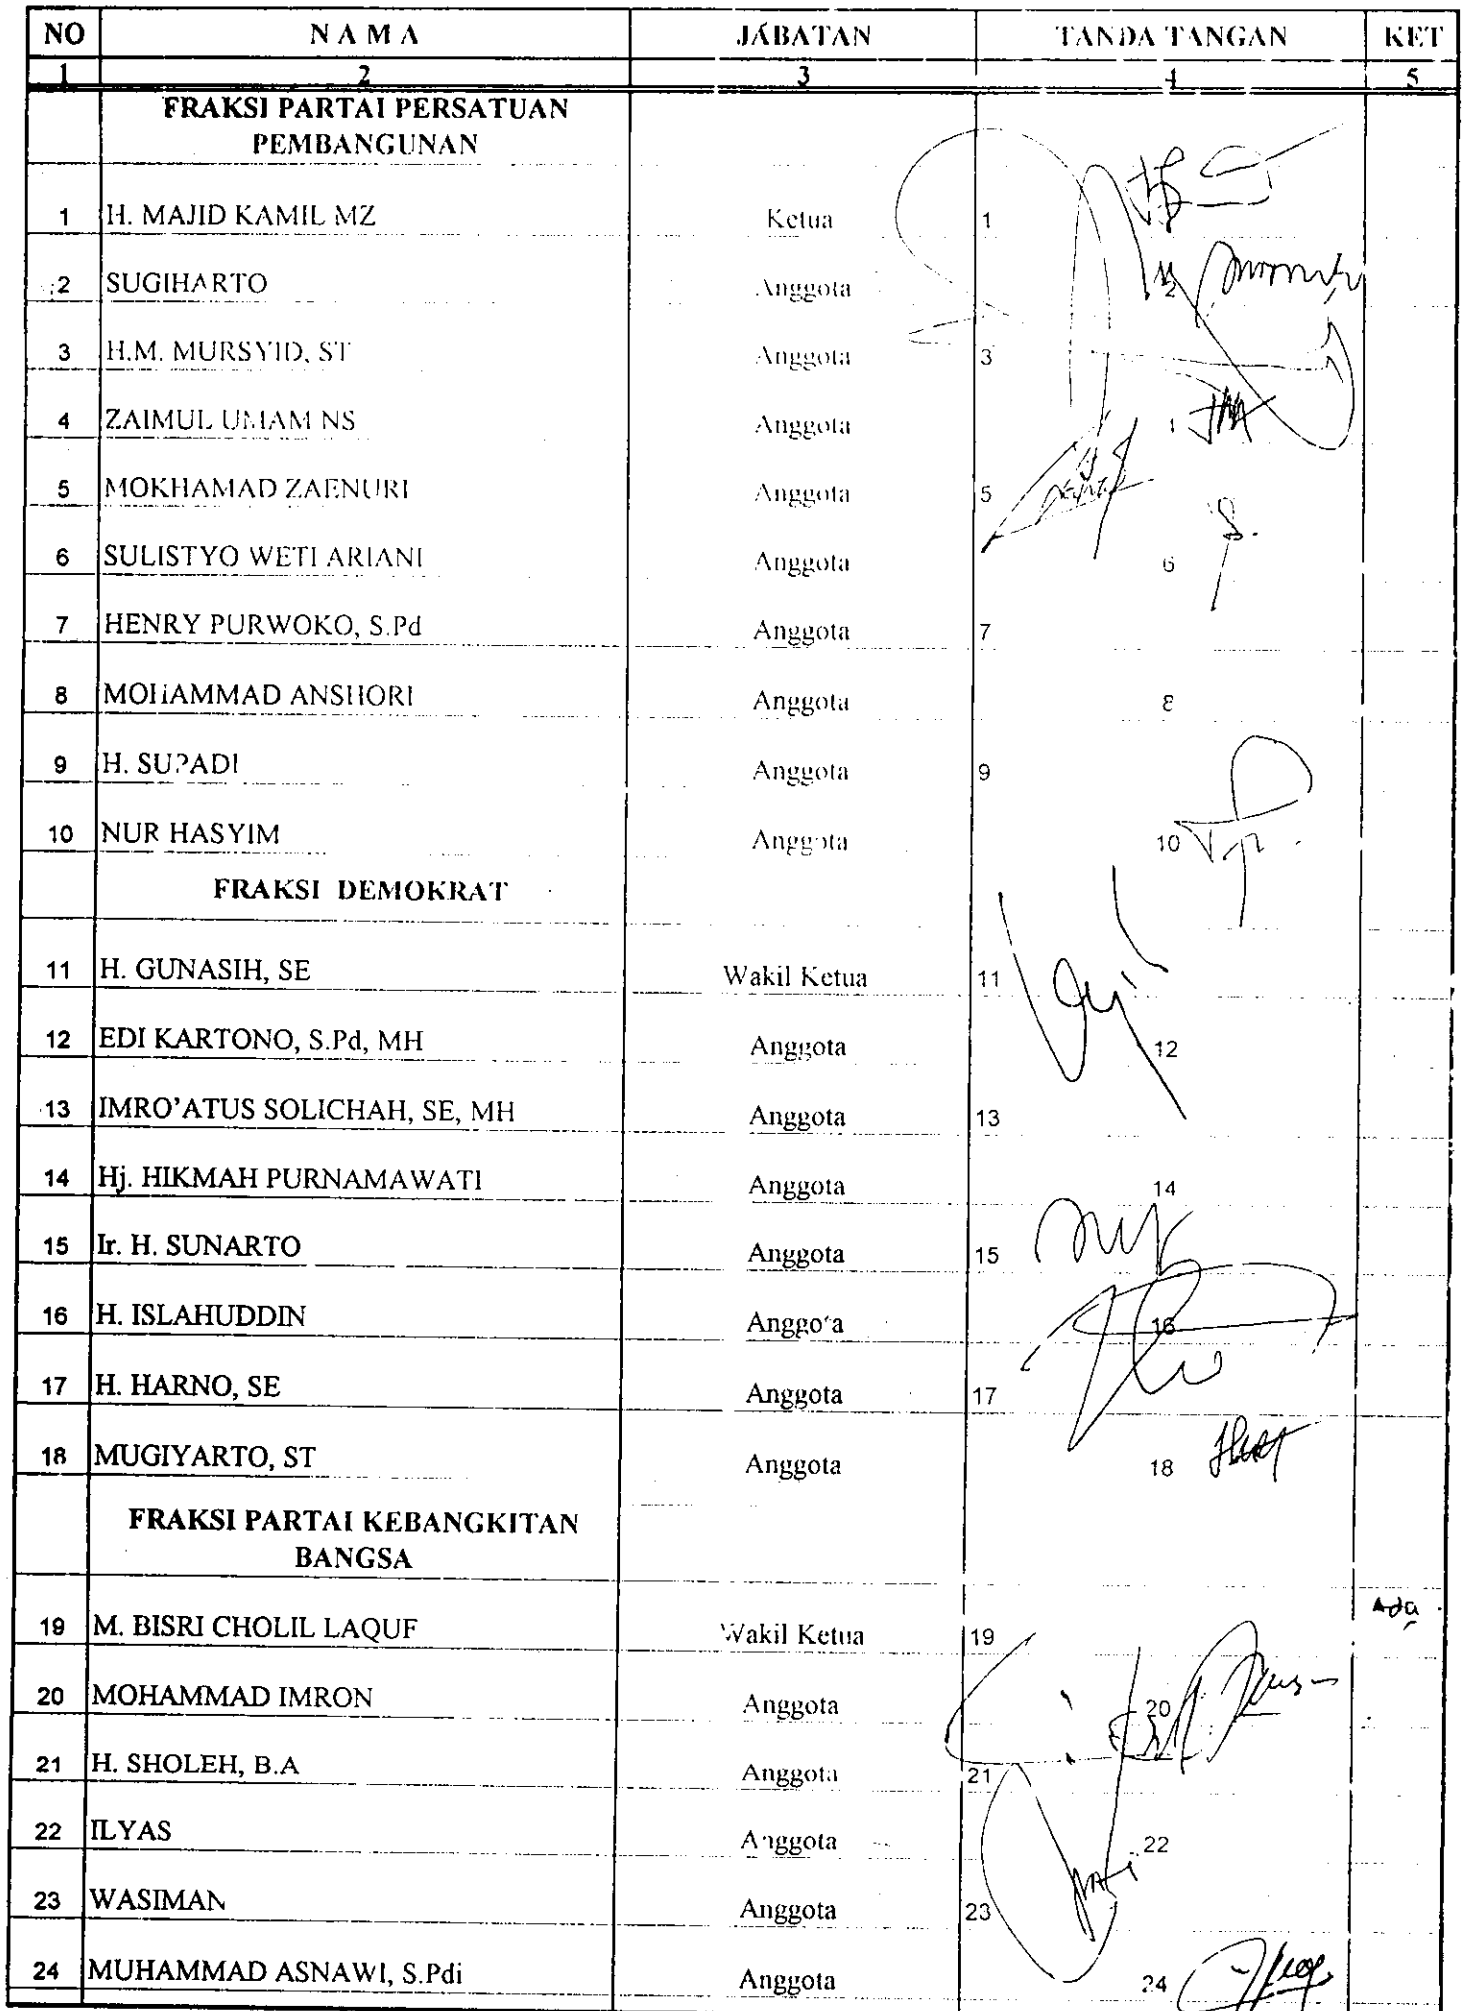 NO NAMA JABATAN TANDA TANGAN KET
1 2 3 4 5
FRAKSI PARTAI PERSATUAN
PEMBANGUNAN
1 H. MAJID KAMIL MZ Ketua 1
2 SUGIHARTO Anggota 2
3 H.M. MURSYID, ST Anggota 3
4 ZAIMUL UMAM NS Anggota 4
5 MOKHAMAD ZAENURI Anggota 5
6 SULISTYO WETI ARIANI Anggota 6
7 HENRY PURWOKO, S.Pd Anggota 7
8 MOHAMMAD ANSHORI Anggota 8
9 H. SUPADI Anggota 9
10 NUR HASYIM Anggota 10
FRAKSI DEMOKRAT
11 H. GUNASIH, SE Wakil Ketua 11
12 EDI KARTONO, S.Pd, MH Anggota 12
13 IMRO'ATUS SOLICHAH, SE, MH Anggota 13
14 Hj. HIKMAH PURNAMAWATI Anggota 14
15 Ir. H. SUNARTO Anggota 15
16 H. ISLAHUDDIN Anggota 16
17 H. HARNO, SE Anggota 17
18 MUGIYARTO, ST Anggota 18
FRAKSI PARTAI KEBANGKITAN
BANGSA
19 M. BISRI CHOLIL LAQUF Wakil Ketua 19 Ada
20 MOHAMMAD IMRON Anggota 20
21 H. SHOLEH, B.A Anggota 21
22 ILYAS Anggota 22
23 WASIMAN Anggota 23
24 MUHAMMAD ASNAWI, S.Pdi Anggota 24